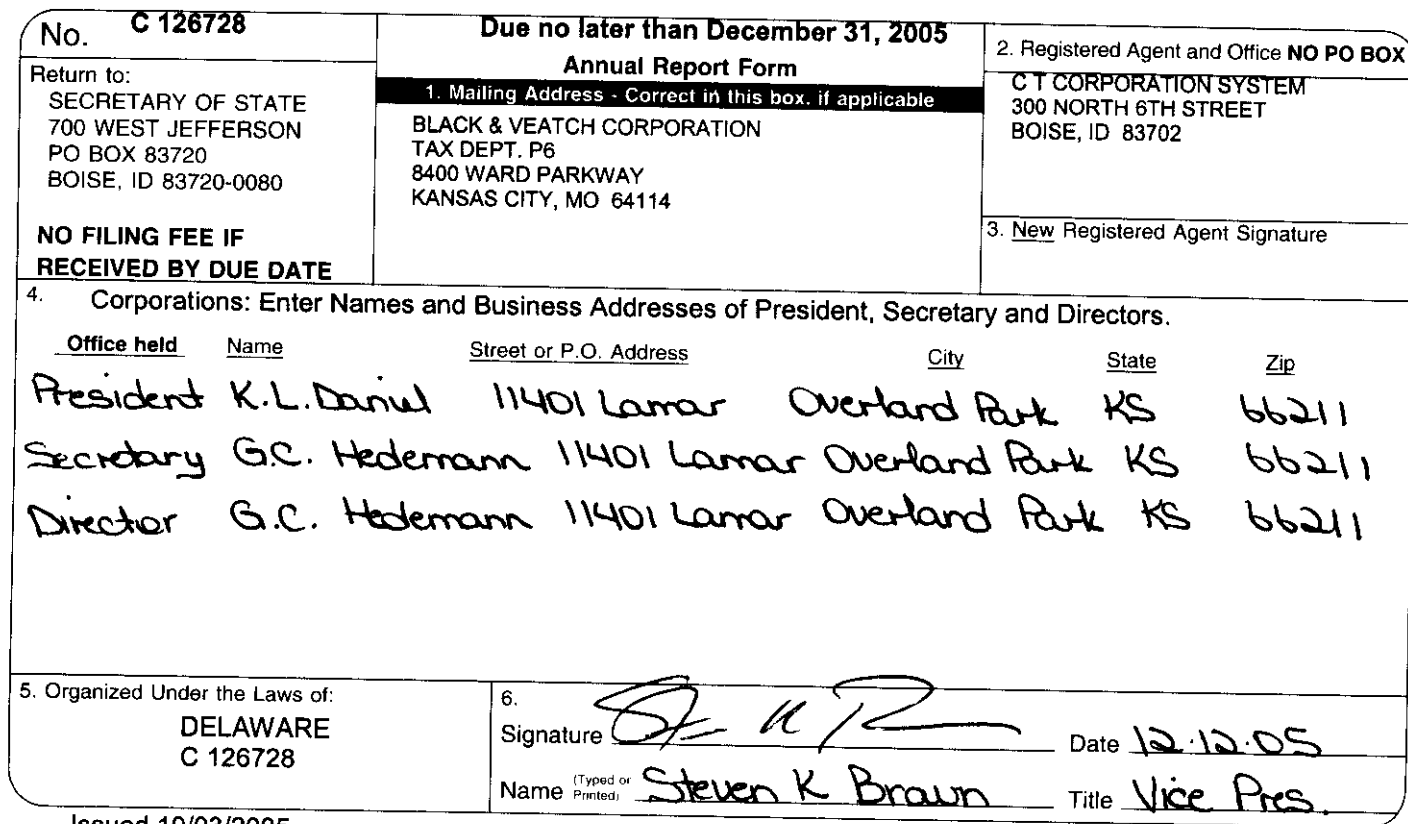 No. C 126728
Return to:
SECRETARY OF STATE
700 WEST JEFFERSON
PO BOX 83720
BOISE, ID 83720-0080
NO FILING FEE IF
RECEIVED BY DUE DATE
Due no later than December 31, 2005
Annual Report Form
1. Mailing Address - Correct in this box. if applicable
BLACK & VEATCH CORPORATION
TAX DEPT. P6
8400 WARD PARKWAY
KANSAS CITY, MO 64114
2. Registered Agent and Office NO PO BOX
C T CORPORATION SYSTEM
300 NORTH 6TH STREET
BOISE, ID 83702
3. New Registered Agent Signature
4. Corporations: Enter Names and Business Addresses of President, Secretary and Directors.
Office held Name Street or P.O. Address City State Zip
President K.L. Daniel 11401 Lamar Overland Park KS 66211
Secretary G.C. Hedemann 11401 Lamar Overland Park KS 66211
Director G.C. Hedemann 11401 Lamar Overland Park KS 66211
5. Organized Under the Laws of:
DELAWARE
C 126728
6.
Signature Date 12.12.05
Name (Typed or Printed) Steven K Braun Title Vice Pres.
Issued 10/03/2005